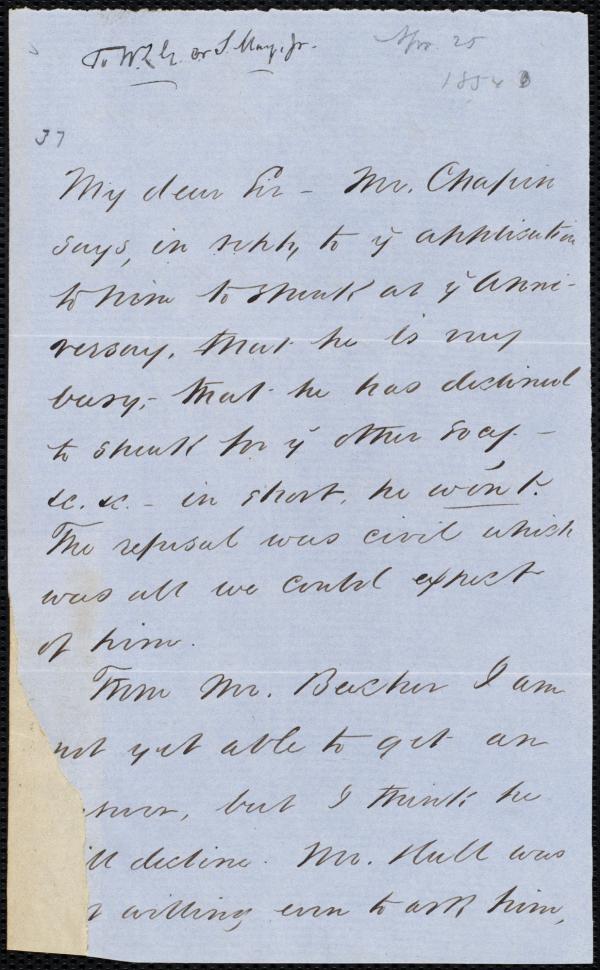 To W.L.G. or S. May, Jr.
Apr. 25
1854
37
My dear Sir - Mr. Chapin
says, in reply to yͤ application
to him to speak at yͤ Anni-
versary, that he is very
busy,- that he has declined
to speak for yͤ other Socy. -
&c. &c. - in short, he won't.
The refusal was civil which
was all we could expect
of him.
From Mr. Beecher I am
not yet able to get an
swer, but I think he
ill decline. Mr. Hull was
t willing even to ask him,